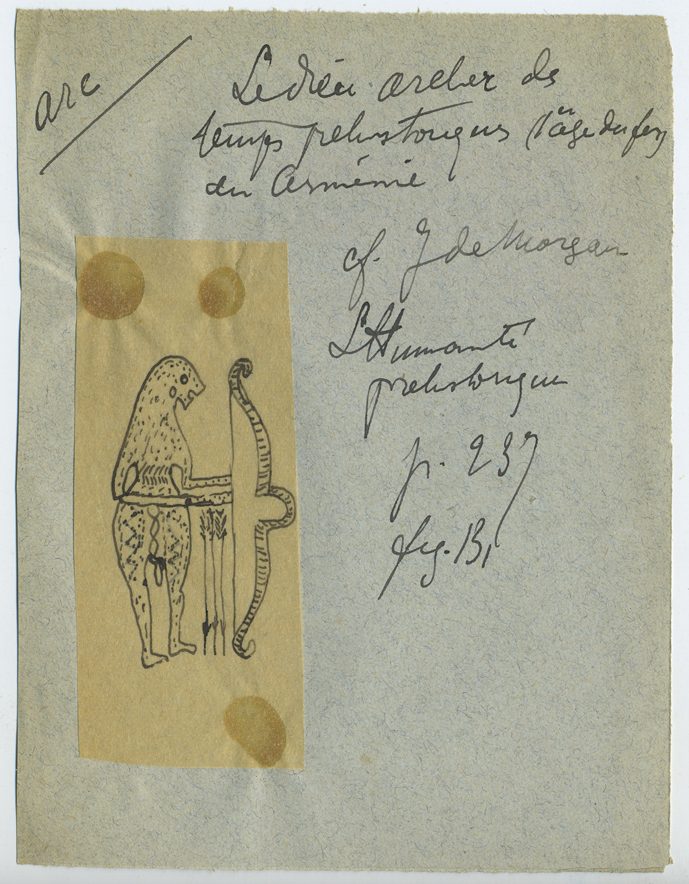 arc
Le dieu archer des
temps préhistoriques (1er âge du fer)
en Arménie
cf. J de Morgan
L'Humanité
préhistorique
p. 237
fig. B,